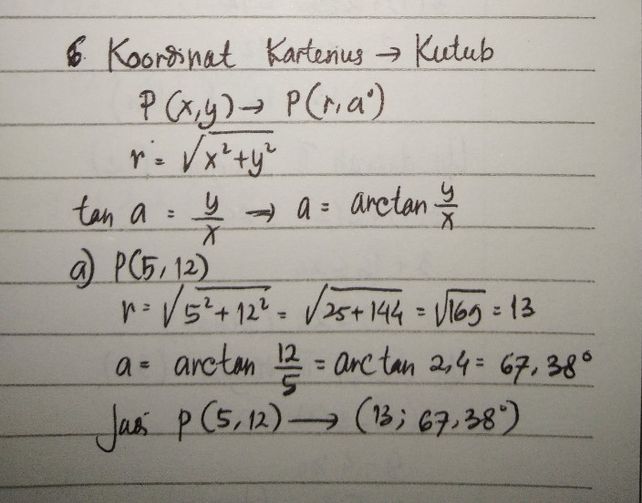 6. Koordinat Kartenius → Kutub
P(x,y) → P(r,a°)
r = √x²+y²
tan a = y/x → a = arctan y/x
a) P(5,12)
r = √5²+12² = √25+144 = √169 = 13
a = arctan 12/5 = arctan 2,4 = 67,38°
Jadi P(5,12) → (13; 67,38°)